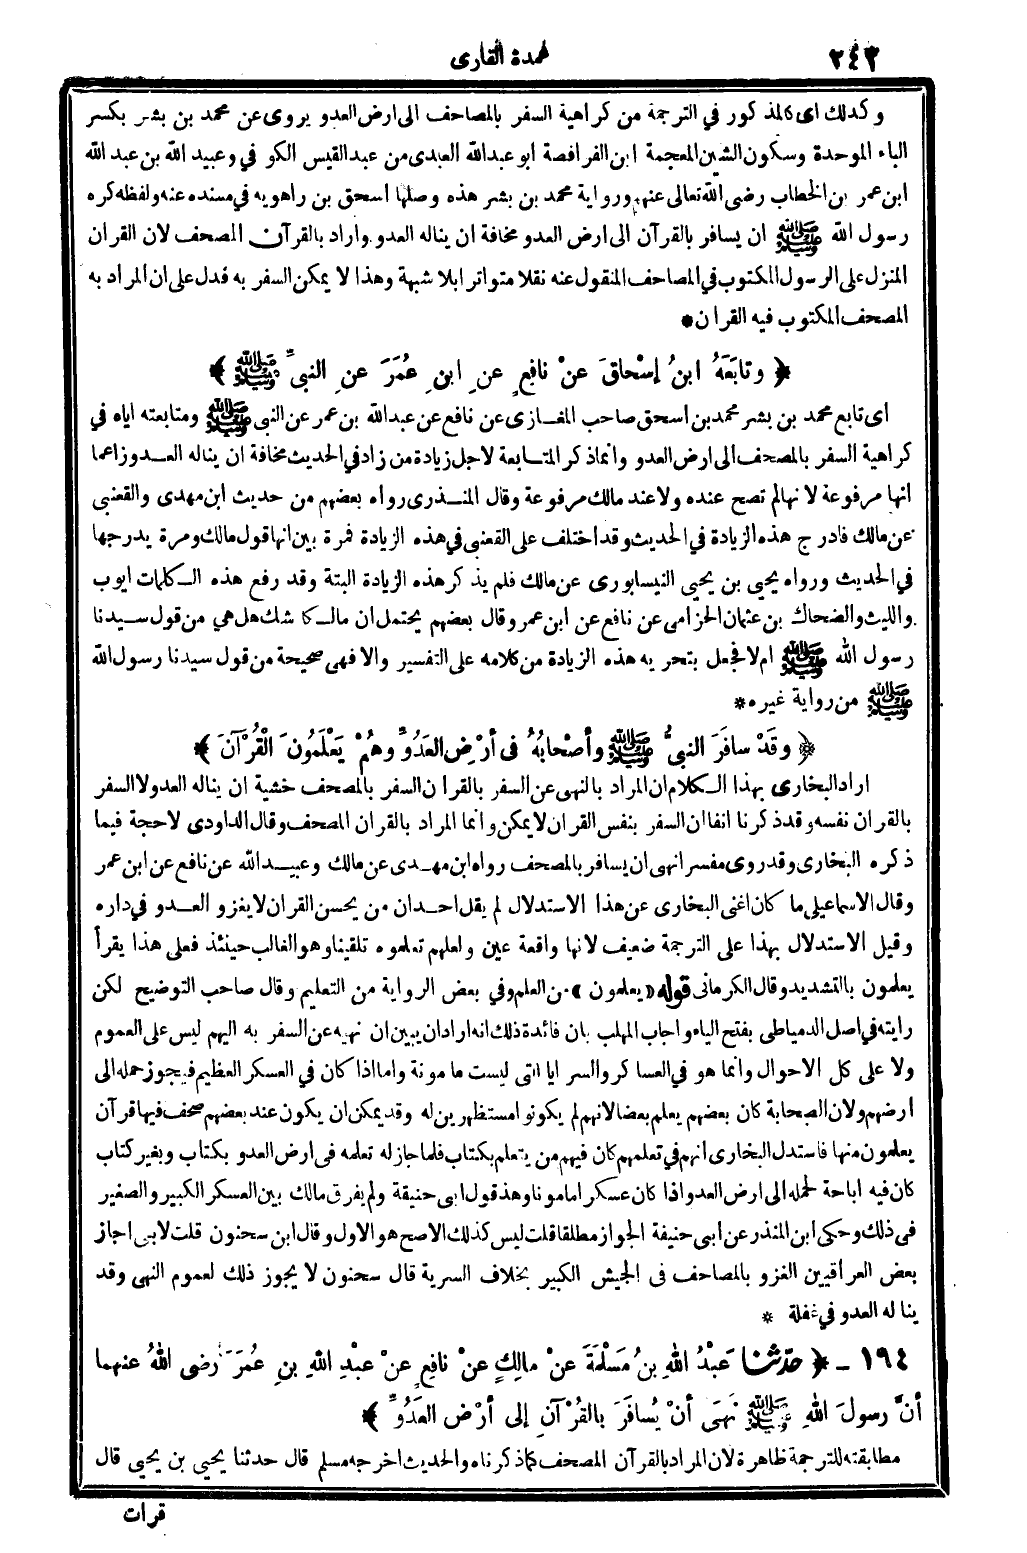 ٢٤٣ عمدة القارى
وكذلك اى كالمذكور في الترجمة من كراهية السفر بالمصاحف الى ارض العدو يروى عن محمد بن بشر بكسر
الباء الموحدة وسكون الشين المعجمة ابن الفرافصة ابو عبدالله العبدى من عبد القيس الكوفي وعبيد الله بن عبد الله
ابن عمر بن الخطاب رضى الله تعالى عنهم ورواية محمد بن بشر هذه وصلها اسحق بن راهويه في مسنده عنه ولفظه كره
رسول الله ﷺ ان يسافر بالقرآن الى ارض العدو مخافة ان يناله العدو واراد بالقرآن المصحف لان القران
المنزل على الرسول المكتوب في المصاحف المنقول عنه نقلا متواترا بلا شبهة وهذا لا يمكن السفر به فدل على ان المراد به
المصحف المكتوب فيه القران *
﴿ وتابَعَهُ ابنُ إسْحاقَ عنْ نافِعٍ عنِ ابنِ عُمَرَ عنِ النبىِّ ﷺ ﴾
اى تابع محمد بن بشر محمد بن اسحق صاحب المغازى عن نافع عن عبدالله بن عمر عن النبى ﷺ ومتابعته اياه في
كراهية السفر بالمصحف الى ارض العدو وانما ذكر المتابعة لاجل زيادة من زاد في الحديث مخافة ان يناله العدو زاعما
انها مرفوعة لانها لم تصح عنده ولا عند مالك مرفوعة وقال المنذرى رواه بعضهم من حديث ابن مهدى والقعنبى
عن مالك فادرج هذه الزيادة في الحديث وقد اختلف على القعنى في هذه الزيادة فمرة بين انها قول مالك ومرة يدرجها
في الحديث ورواه يحيى بن يحيى النيسابورى عن مالك فلم يذكر هذه الزيادة البتة وقد رفع هذه الكلمات ايوب
والليث والضحاك بن عثمان الحزامى عن نافع عن ابن عمر وقال بعضهم يحتمل ان مالكا شك هل هي من قول سيدنا
رسول الله ﷺ ام لا فجعل بتحريه هذه الزيادة من كلامه على التفسير والا فهى صحيحة من قول سيدنا رسول الله
ﷺ من رواية غيره *
﴿ وقَدْ سافَرَ النبىُّ ﷺ وأصْحابُهُ فى أرْضِ العَدُوِّ وهُمْ يَعْلَمُونَ القُرْآنَ ﴾
اراد البخارى بهذا الكلام ان المراد بالنهى عن السفر بالقران السفر بالمصحف خشية ان يناله العدو لا السفر
بالقران نفسه وقد ذكرنا انفا ان السفر بنفس القران لا يمكن وانما المراد بالقران المصحف وقال الداودى لا حجة فيما
ذكره البخارى وقد روى مفسرا نهى ان يسافر بالمصحف رواه ابن مهدى عن مالك وعبيد الله عن نافع عن ابن عمر
وقال الاسماعيلى ما كان اغنى البخارى عن هذا الاستدلال لم يقل احد ان من يحسن القران لا يغزو العدو في داره
وقيل الاستدلال بهذا على الترجمة ضعيف لانها واقعة عين ولعلهم تعلموه تلقينا وهو الغالب حينئذ فعلى هذا يقرأ
يعلمون بالتشديد وقال الكرمانى قوله «يعلمون» من العلم وفي بعض الرواية من التعليم وقال صاحب التوضيح لكن
رايته في اصل الدمياطى بفتح الياء واجاب المهلب بان فائدة ذلك انه اراد ان يبين ان نهيه عن السفر به اليهم ليس على العموم
ولا على كل الاحوال وانما هو في العساكر والسرايا التى ليست مامونة واما اذا كان في العسكر العظيم فيجوز حمله الى
ارضهم ولان الصحابة كان بعضهم يعلم بعضا لانهم لم يكونوا مستظهرين له وقد يمكن ان يكون عند بعضهم صحف فيها قرآن
يعلمون منها فاستدل البخارى انهم في تعلمهم كان فيهم من يتعلم بكتاب فلما جاز له تعلمه فى ارض العدو بكتاب وبغير كتاب
كان فيه اباحة لحمله الى ارض العدو اذا كان عسكرا مامونا وهذ قول ابى حنيفة ولم يفرق مالك بين العسكر الكبير والصغير
فى ذلك وحكى ابن المنذر عن ابى حنيفة الجواز مطلقا قلت ليس كذلك الاصح هو الاول وقال ابن سحنون قلت لابى اجاز
بعض العراقيين الغزو بالمصاحف فى الجيش الكبير بخلاف السرية قال سحنون لا يجوز ذلك لعموم النهى وقد
يناله العدو في غفلة *
١٩٤ ـ ﴿ حدّثنا عَبْدُ اللهِ بنُ مَسْلَمَةَ عنْ مالِكٍ عنْ نافِعٍ عنْ عبْدِ اللهِ بنِ عُمَرَ رضى اللهُ عنهما
أنَّ رسولَ اللهِ ﷺ نَهَى أنْ يُسافَرَ بالقُرْآنِ إلى أرْضِ العَدُوِّ ﴾
مطابقته للترجمة ظاهرة لان المراد بالقرآن المصحف كما ذكرناه والحديث اخرجه مسلم قال حدثنا يحيى بن يحيى قال
قرات